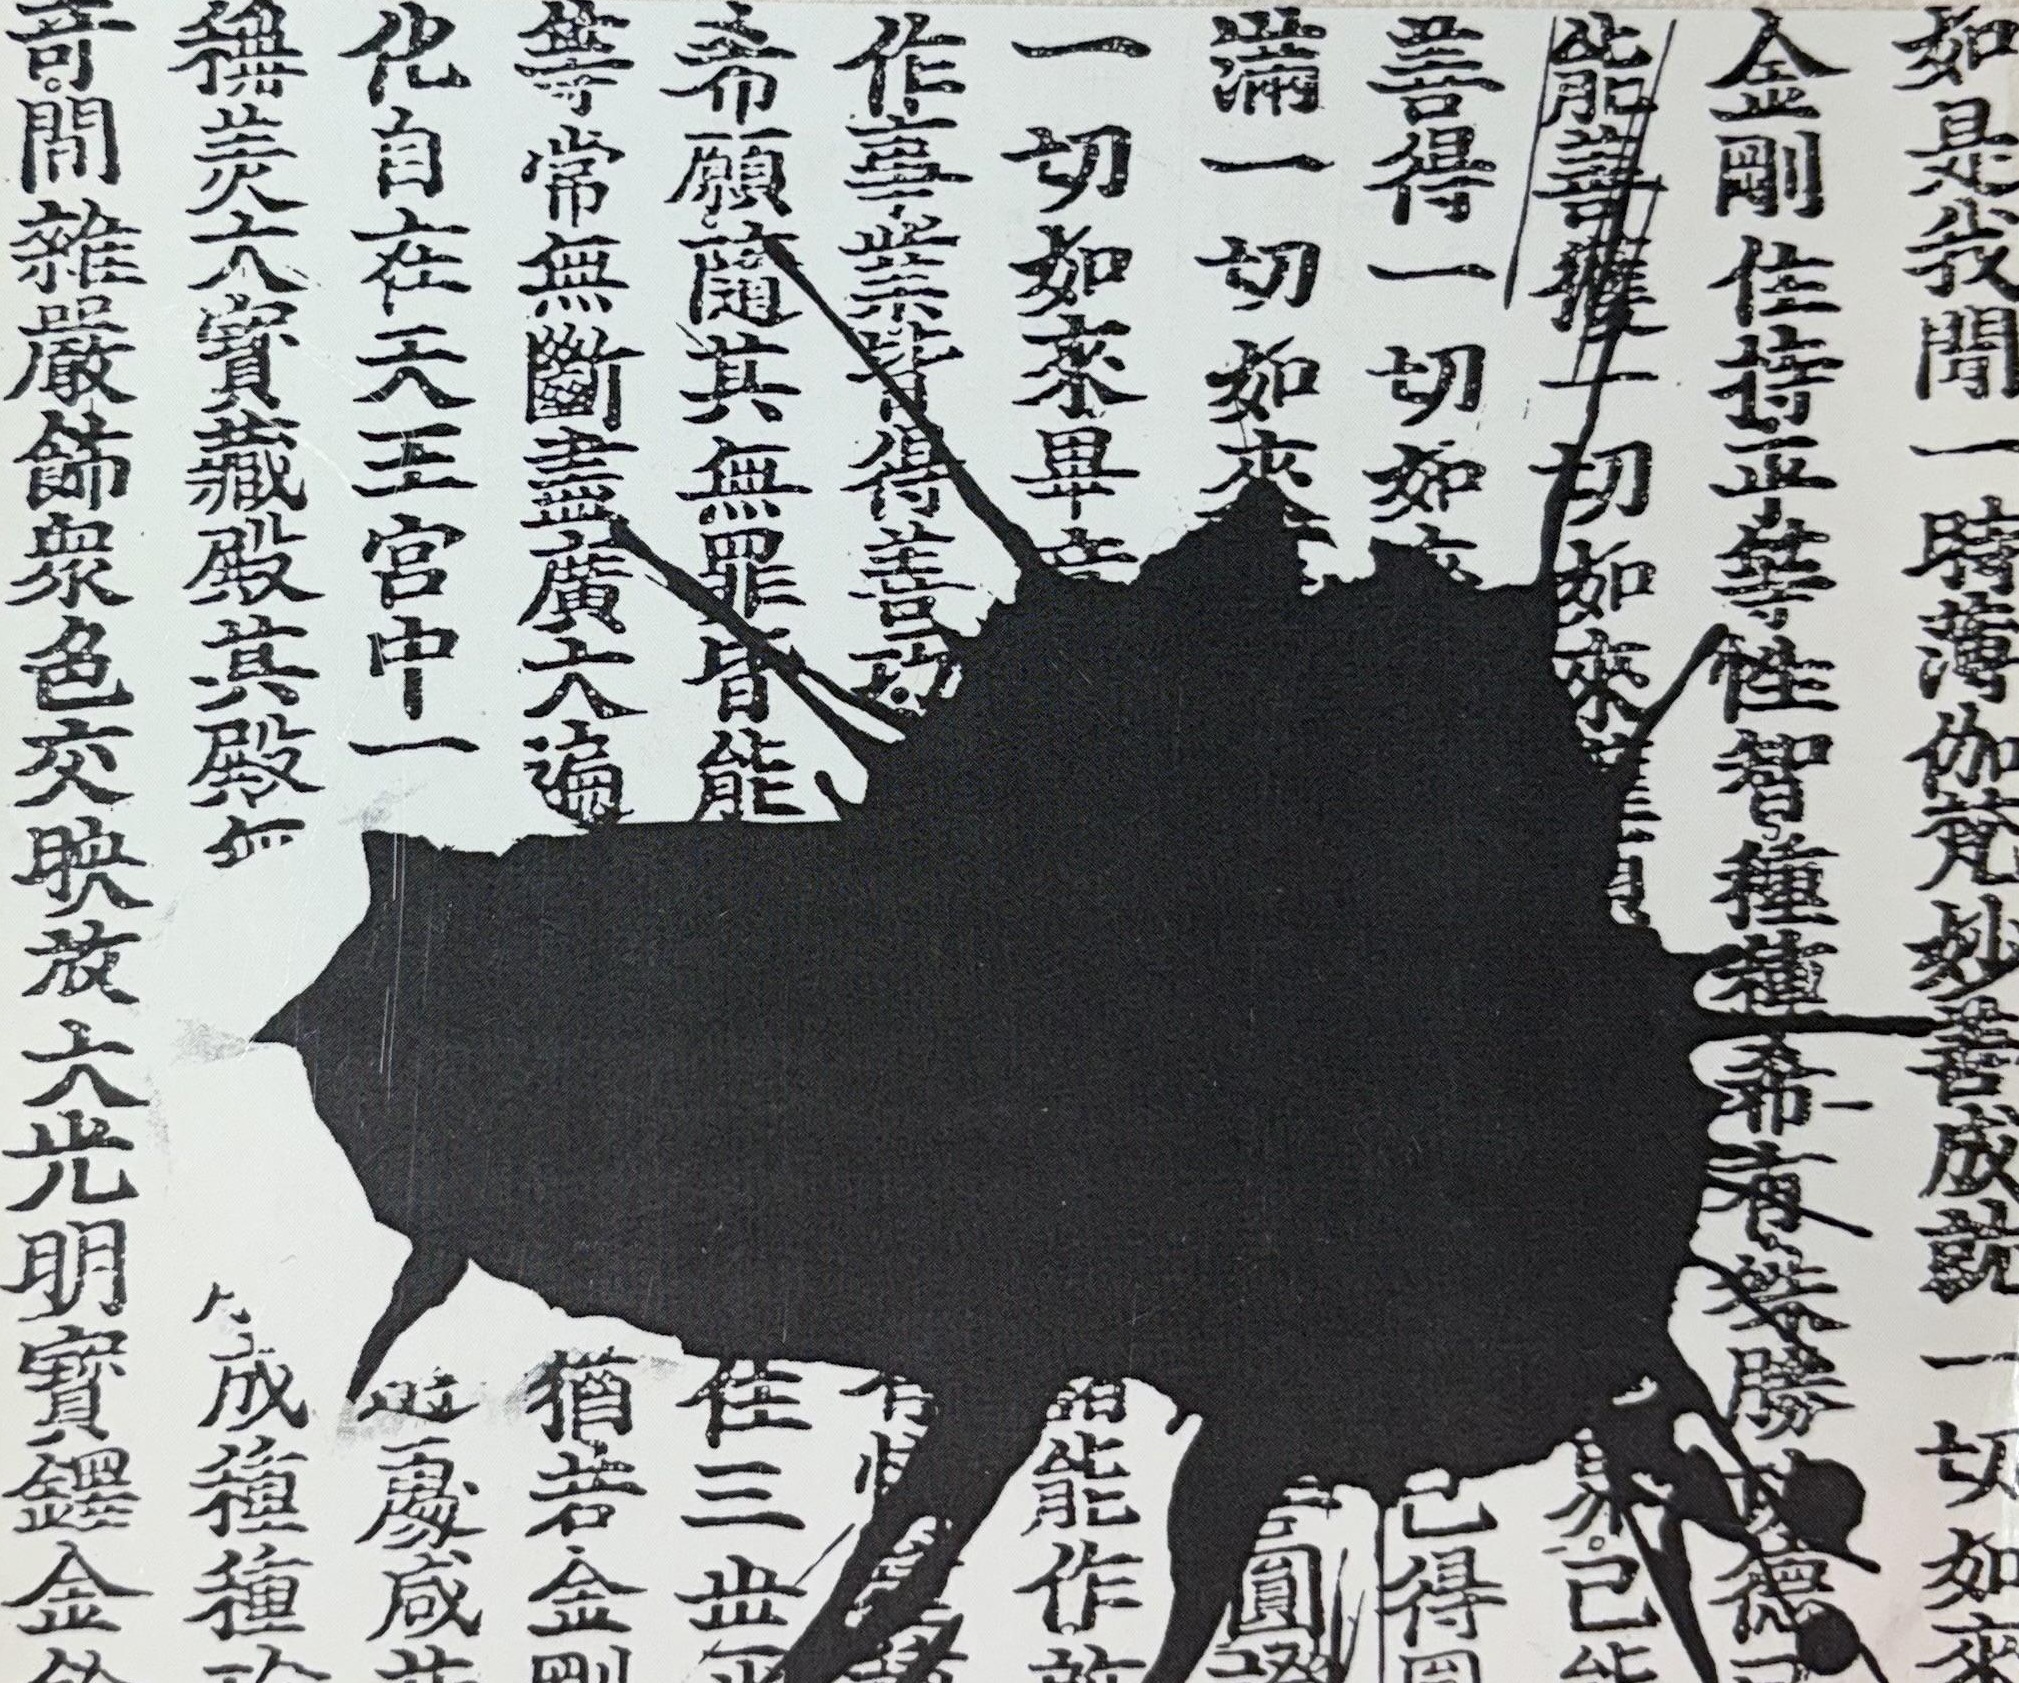 如是我聞一時薄伽梵妙善成就一切如來
金剛住持平等性智種種希有殊勝 德已
能善獲一切如來 果已能
善得一切如 已得圓
滿一切如來 圓
一切如來畢 能作
作事業皆得善巧
希願隨其無罪皆能 住三世平
等常無斷盡廣大遍 猶若金剛
化自在天王宮中一 處咸共
稱美大寶藏殿其殿無 成種種珍
奇間雜嚴飾衆色交映放大光明寶鐸金鈴